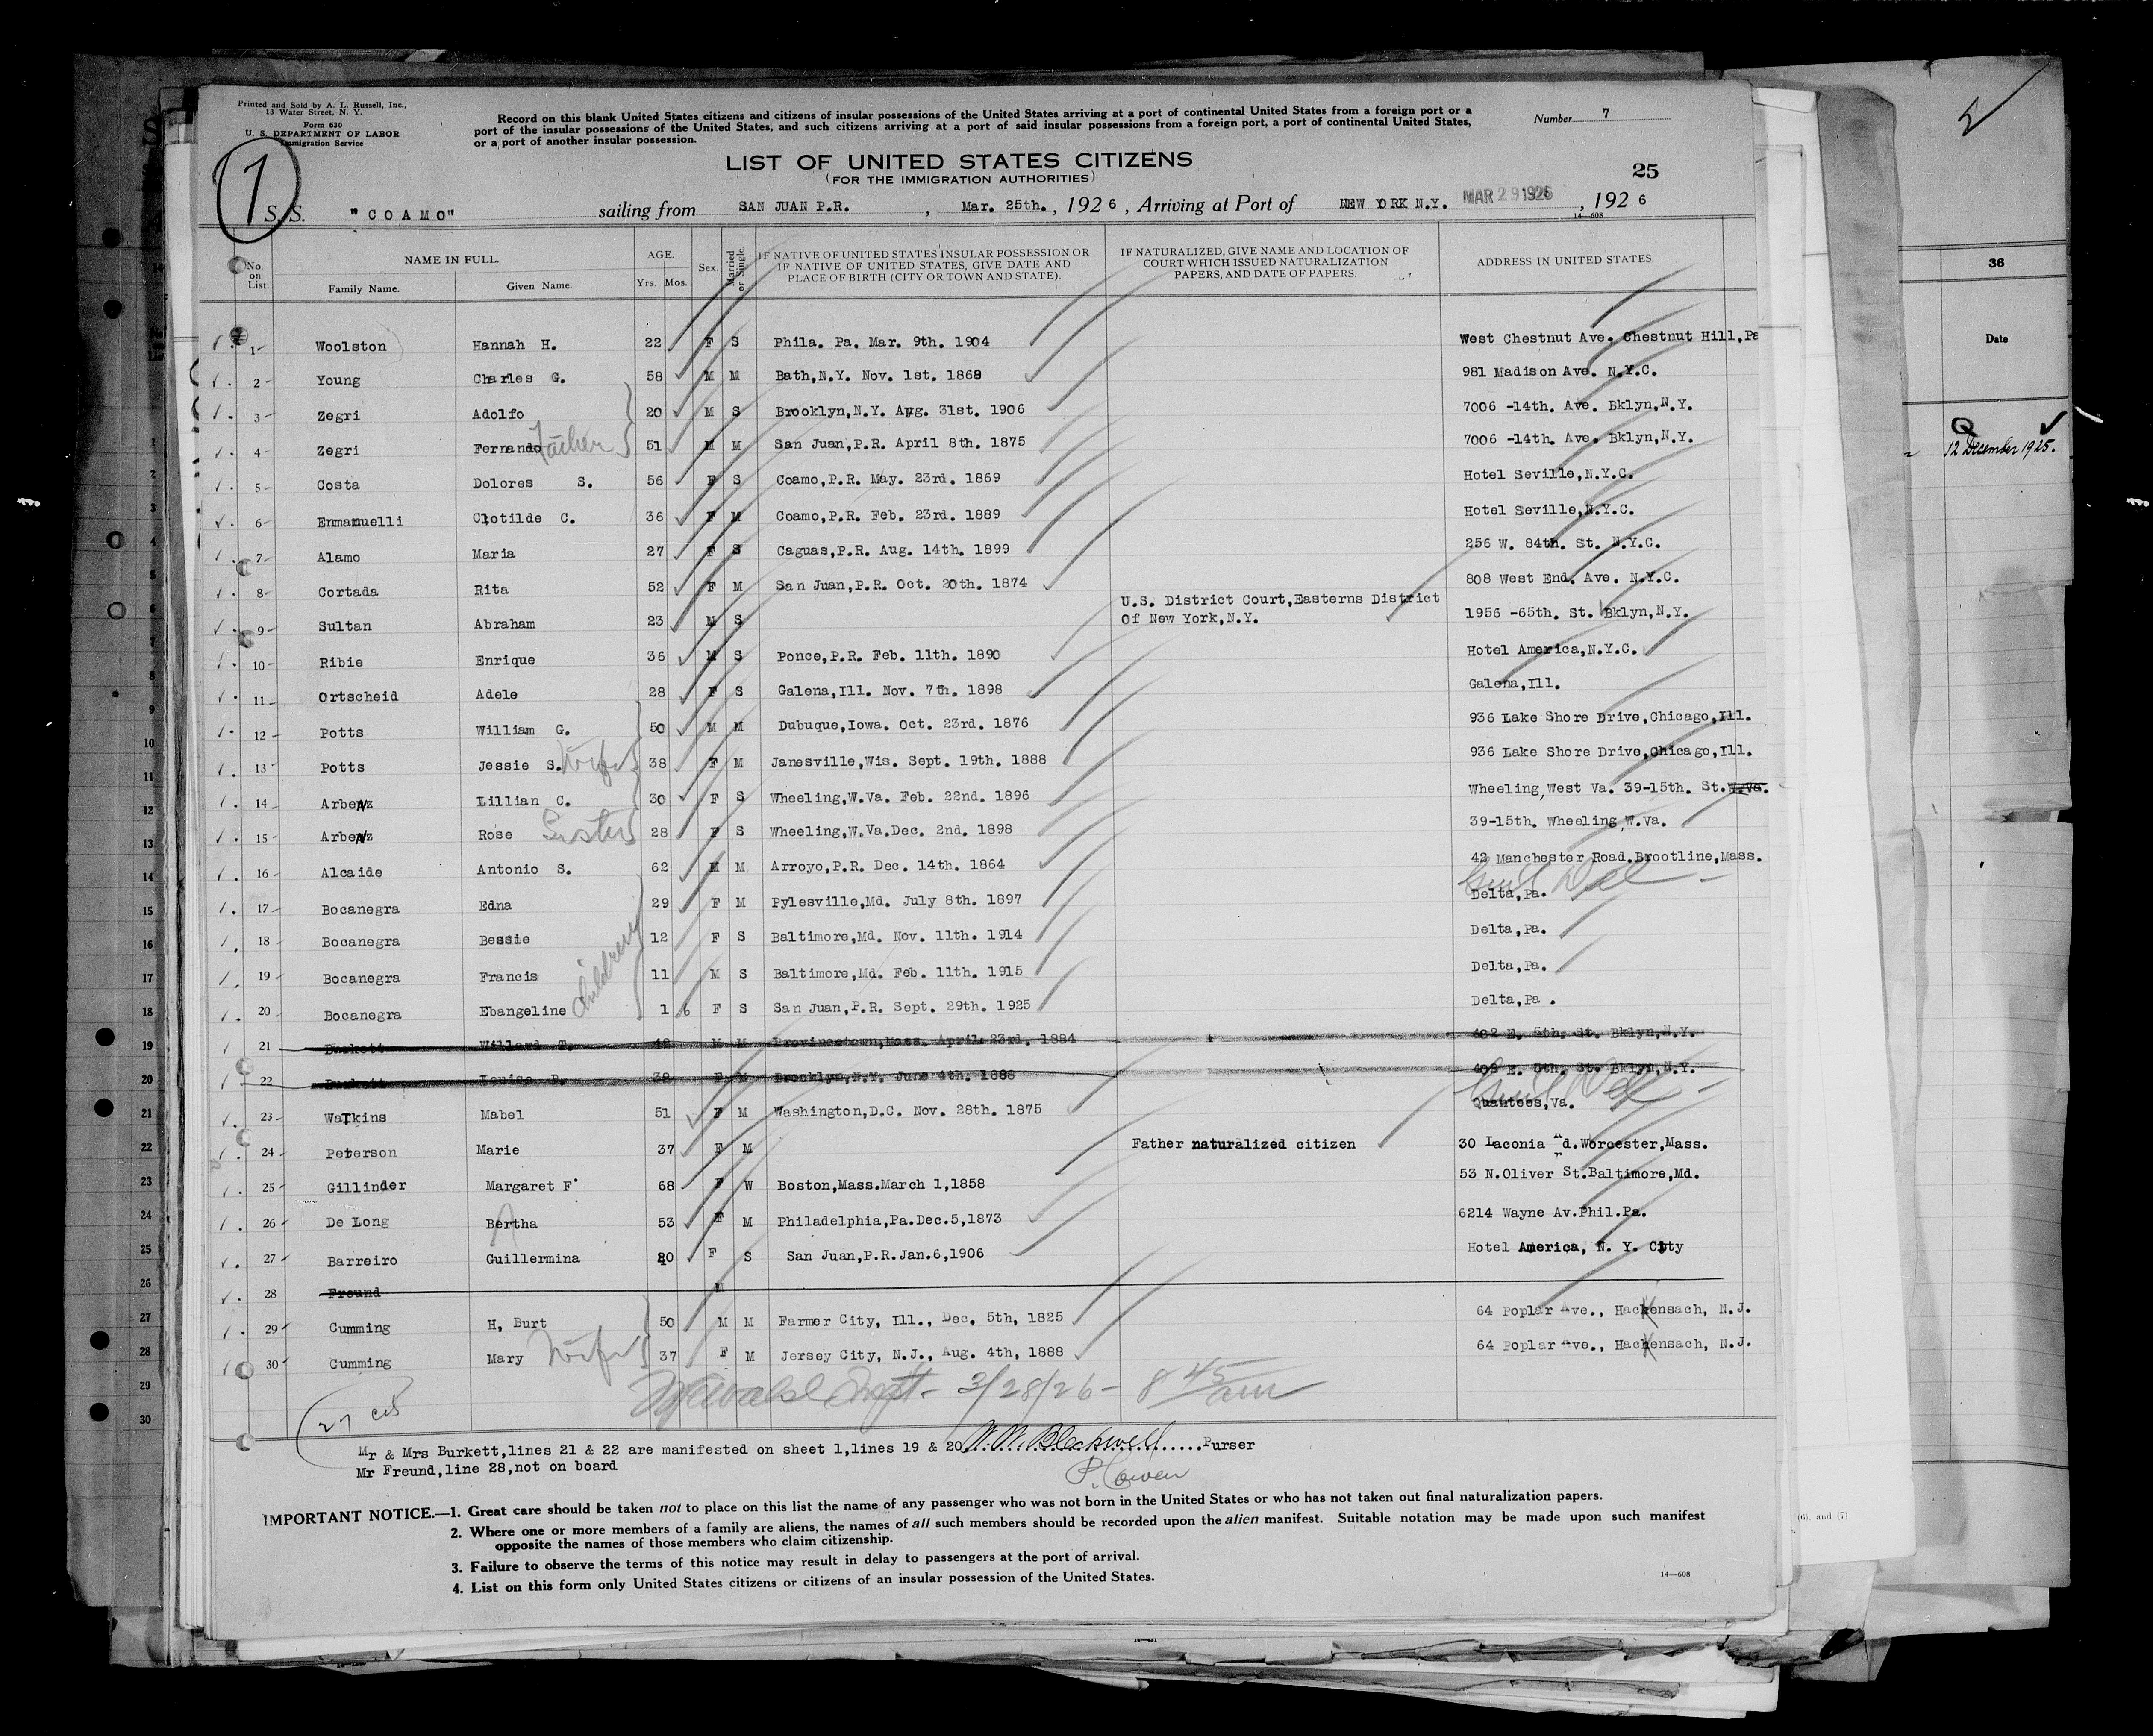 Printed and Sold by A. L. Russell, Inc.,
13 Water Street, N. Y.
Form 630
U. S. DEPARTMENT OF LABOR
Immigration Service
Record on this blank United States citizens and citizens of insular possessions of the United States arriving at a port of continental United States from a foreign port or a
port of the insular possessions of the United States, and such citizens arriving at a port of said insular possessions from a foreign port, a port of continental United States,
or a port of another insular possession.
Number 7
LIST OF UNITED STATES CITIZENS
(FOR THE IMMIGRATION AUTHORITIES)
25
1
S. S. "COAMO" sailing from SAN JUAN P.R. , Mar. 25th. , 192 6 , Arriving at Port of NEW YORK N.Y. MAR 29 1926 , 192 6
14—608
No. on List. NAME IN FULL. Family Name. Given Name. AGE. Yrs. Mos. Sex. Married or Single. IF NATIVE OF UNITED STATES INSULAR POSSESSION OR IF NATIVE OF UNITED STATES, GIVE DATE AND PLACE OF BIRTH (CITY OR TOWN AND STATE). IF NATURALIZED, GIVE NAME AND LOCATION OF COURT WHICH ISSUED NATURALIZATION PAPERS, AND DATE OF PAPERS. ADDRESS IN UNITED STATES.
1 Woolston Hannah H. 22 F S Phila. Pa. Mar. 9th. 1904 West Chestnut Ave. Chestnut Hill,Pa
2 Young Charles G. 58 M M Bath,N.Y. Nov. 1st. 1868 981 Madison Ave. N.Y.C.
3 Zegri Adolfo 20 M S Brooklyn,N.Y. Aug. 31st. 1906 7006 -14th. Ave. Bklyn,N.Y.
4 Zegri Fernando Father 51 M M San Juan,P.R. April 8th. 1875 7006 -14th. Ave. Bklyn,N.Y.
5 Costa Dolores S. 56 F S Coamo,P.R. May. 23rd. 1869 Hotel Seville,N.Y.C.
6 Enmanuelli Clotilde C. 36 F M Coamo,P.R. Feb. 23rd. 1889 Hotel Seville,N.Y.C.
7 Alamo Maria 27 F S Caguas,P.R. Aug. 14th. 1899 256 W. 84th. St. N.Y.C.
8 Cortada Rita 52 F M San Juan,P.R. Oct. 20th. 1874 808 West End. Ave. N.Y.C.
9 Sultan Abraham 23 M S U.S. District Court,Easterns District Of New York,N.Y. 1956 -65th. St. Bklyn,N.Y.
10 Ribie Enrique 36 M S Ponce,P.R. Feb. 11th. 1890 Hotel America,N.Y.C.
11 Ortscheid Adele 28 F S Galena,Ill. Nov. 7th. 1898 Galena,Ill.
12 Potts William G. 50 M M Dubuque,Iowa. Oct. 23rd. 1876 936 Lake Shore Drive,Chicago,Ill.
13 Potts Jessie S. Wife 38 F M Janesville,Wis. Sept. 19th. 1888 936 Lake Shore Drive,Chicago,Ill.
14 Arbenz Lillian C. 30 F S Wheeling,W.Va. Feb. 22nd. 1896 Wheeling,West Va. 39-15th. St. W.Va.
15 Arbenz Rose Sister 28 F S Wheeling,W.Va.Dec. 2nd. 1898 39-15th. Wheeling,W.Va.
16 Alcaide Antonio S. 62 M M Arroyo,P.R. Dec. 14th. 1864 42 Manchester Road.Brootline,Mass.
17 Bocanegra Edna 29 F M Pylesville,Md. July 8th. 1897 Delta,Pa.
18 Bocanegra Bessie children 12 F S Baltimore,Md. Nov. 11th. 1914 Delta,Pa.
19 Bocanegra Francis 11 M S Baltimore,Md. Feb. 11th. 1915 Delta,Pa.
20 Bocanegra Ebangeline 1 6 F S San Juan,P.R. Sept. 29th. 1925 Delta,Pa .
21 Burkett Willard T. 42 M M Provincetown,Mass. April 23rd. 1884 402 E. 5th. St. Bklyn,N.Y.
22 Burkett Louise D. 38 F M Brooklyn,N.Y. June 4th. 1888 402 E. 5th. St. Bklyn,N.Y.
23 Watkins Mabel 51 F M Washington,D.C. Nov. 28th. 1875 Quantees,Va.
24 Peterson Marie 37 F M Father naturalized citizen 30 Laconia Rd.Worcester,Mass.
25 Gillinder Margaret F 68 F W Boston,Mass.March 1,1858 53 N.Oliver St.Baltimore,Md.
26 De Long Bertha 53 F M Philadelphia,Pa.Dec.5,1873 6214 Wayne Av.Phil.Pa.
27 Barreiro Guillermina 20 F S San Juan,P.R.Jan.6,1906 Hotel America, N. Y. City
28 Freund M
29 Cumming H, Burt 50 M M Farmer City, Ill., Dec, 5th, 1825 64 Poplar Ave., Hackensach, N.J.
30 Cumming Mary Wife 37 F M Jersey City, N.J., Aug. 4th, 1888 64 Poplar Ave., Hackensach, N.J.
3/28/26 - 8 45 am
27
Mr & Mrs Burkett,lines 21 & 22 are manifested on sheet 1,lines 19 & 20 W. W. Blackwell Purser
Mr Freund,line 28,not on board
P. Cowen
IMPORTANT NOTICE.—1. Great care should be taken not to place on this list the name of any passenger who was not born in the United States or who has not taken out final naturalization papers.
2. Where one or more members of a family are aliens, the names of all such members should be recorded upon the alien manifest. Suitable notation may be made upon such manifest
opposite the names of those members who claim citizenship.
3. Failure to observe the terms of this notice may result in delay to passengers at the port of arrival.
4. List on this form only United States citizens or citizens of an insular possession of the United States.
14—608
36
Date
12 December 1925.
(6), and (7)